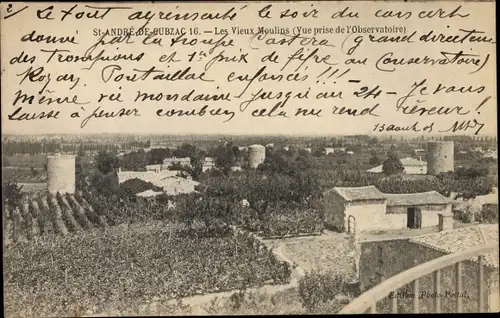 2/ Le tout agrémenté le soir du concert
St-ANDRÉ-DE-CUBZAC 16. — Les Vieux Moulins (Vue prise de l'Observatoire)
donné par la troupe Castéra (grand directeur
des Trompions et 1er prix de fifre au Conservatoire)
Royan, Pontaillac enfoncés!!! —
Même vie mondaine jusqu'au 24 - Je vous
laisse à penser combien cela nous rend rêveur!
13 août 05
Edition Photo-Postal.